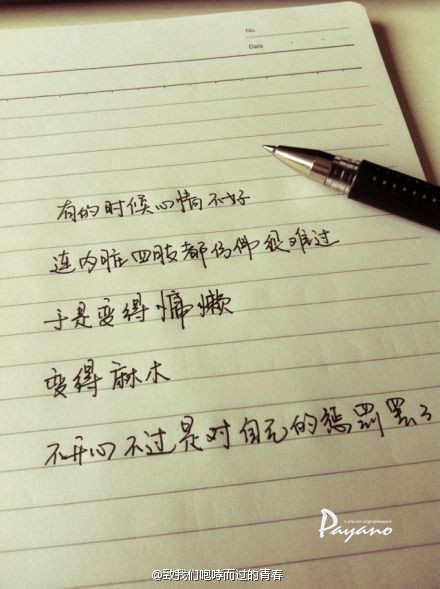 No.
Date
有的时候心情不好
连内脏四肢都仿佛很难过
于是变得慵懒
变得麻木
不开心不过是对自己的惩罚罢了
Payano
@致我们咆哮而过的青春